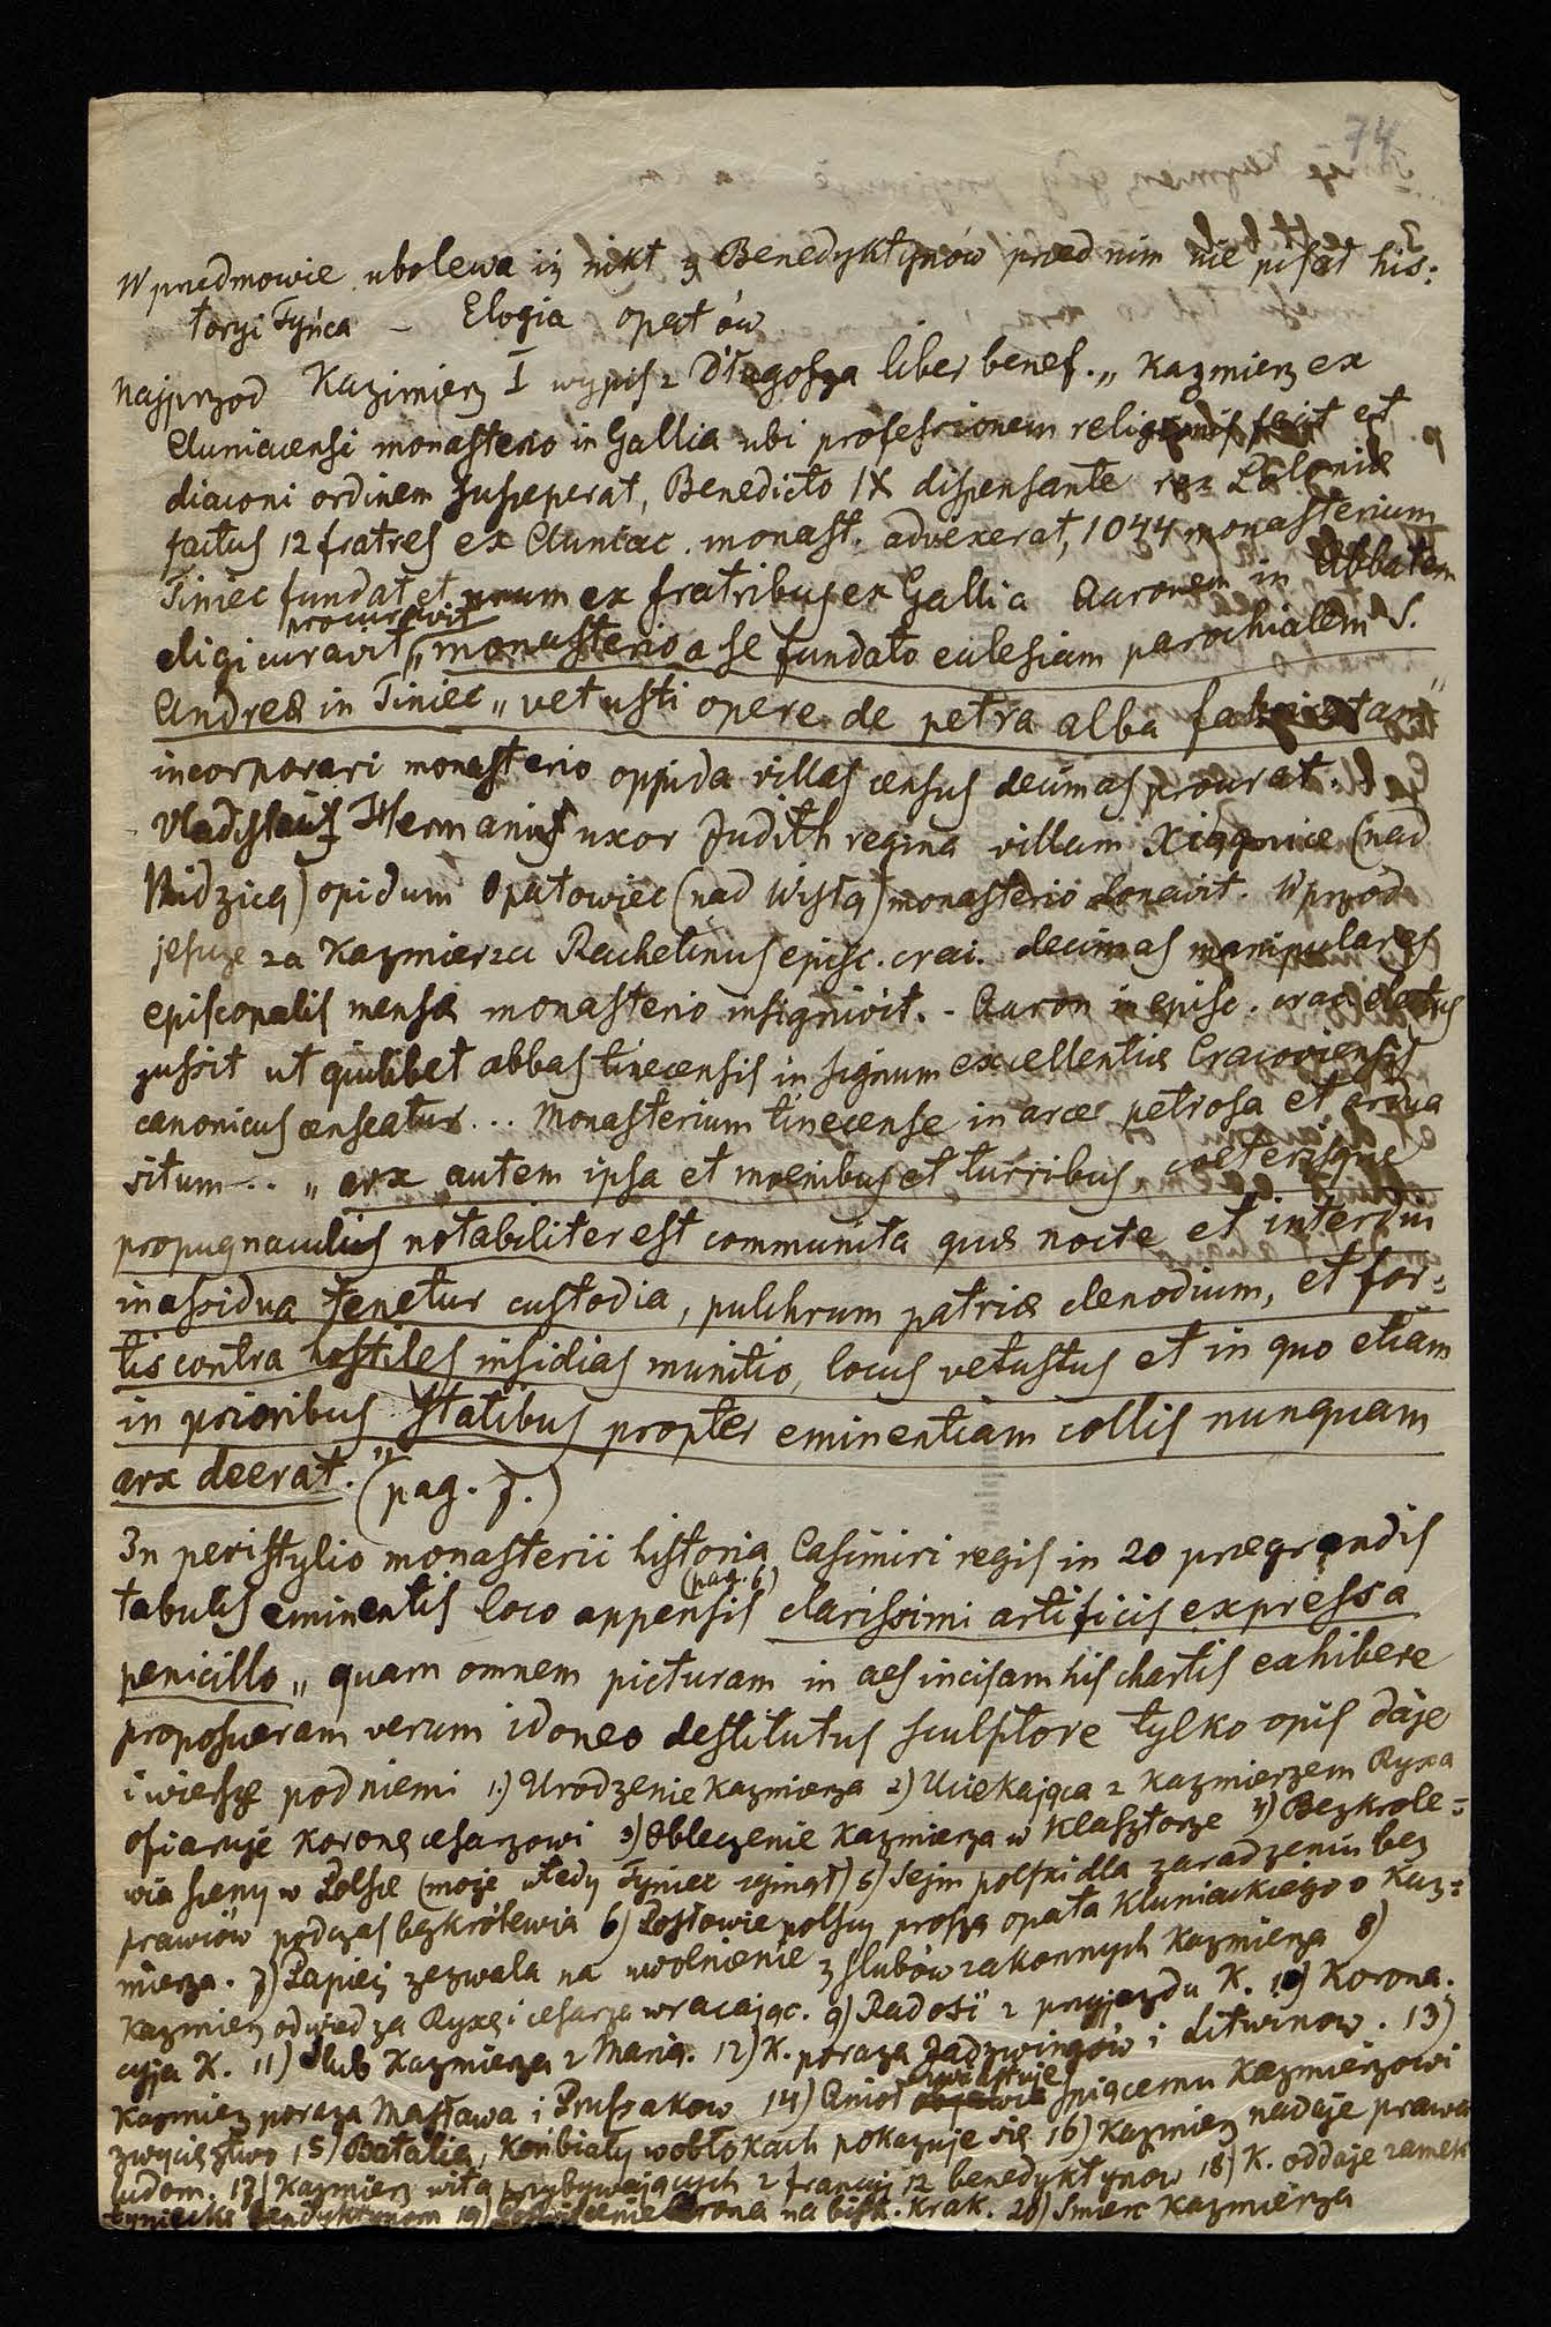 74
W przedmowie ubolewa iż nikt z Benedyktynów przed nim nie pisał his:
toryi Tyńca – Elogia opatów
Najprzod Kazimierz I wypis z Długosza liber benef. „ Kazmierz ex
Cluniacensi monasterio in Gallia ubi professionem religionis fecit et
diaconi ordinem susceperat, Benedicto IX dispensante rex Poloniæ
factus 12 fratres ex Cluniac. monast. advexerat, 1044 monasterium
Tiniec fundat et unum ex fratribus ex Gallia Aaronem in Abbatem
eligi curavit procuravit „monasterio a se fundato eclesiam parochialem S.
Andreæ in Tiniec „ vetusti opere de petra alba fabricatam"
incorporari monasterio oppida villas census decimas procurat.
Vladislaus Hermanus uxor Judith regina villam Xiąznice (nad
Nidzicą) opidum Opatowiec (nad Wisłą) monasterio donavit. Wprzód
jeszcze za Kazmierza Rachelinus episc. crac. decimas manipulares
episcopalis mensæ monasterio insignivit. - Aaron in episc. crac. electus
jussit ut quilibet abbas tinecensis in signum excellentiæ Cracoviensis
canonicus censeatur... Monasterium tinecense in arce petrosa et ardua
situm... „ arx autem ipsa et moenibus et turribus, coeterisque
propugnaculis notabiliter est communita quæ nocte et interdiu
in assidua tenetur custodia, pulchrum patriæ clenodium, et for:
tis contra hostiles insidias munitio, locus vetustus et in quo etiam
in prioribus statibus propter eminentiam collis nunquam
arx deerat." (pag. 7.)
In peristylio monasterii historia Casimiri regis in 20 prægrandis
tabulis eminentis loco appensis (pag. 6) clarissimi artificis expressa
penicillo „ quam omnem picturam in aes incisam his chartis exhibere
proposueram verum idoneo destitutus sculptore tylko opis daje
i wiersze pod niemi 1.) Urodzenie Kazmierza 2) Uciekająca z Kazmierzem Ryxa
ofiaruje koronę cesarzowi 3) Obleczenie Kazmierza w klasztorze 4) Bezkrole:
wia sceny w Polsce (moje wtedy Tyniec zginął) 5) Sejm polski dla zaradzeniu bez
prawiów podczas bezkrólewia 6) Posłowie polscy proszą opata Kluniackiego o Kaz:
mierza. 7) Papież zezwala na uwolnienie z slubów zakonnych Kazmierza 8)
Kazmierz odwjedza Ryxę i cesarza wracając. 9) Radość z przyjazdu K. 10) Korona:
cyja K. 11) Slub Kazmierza z Marią. 12) K. poraza Jadzwingów i Litwinow. 13)
Kazmierz poraza Masława i Prusakow 14) Anioł zwiastuje spiącemu Kazmierzowi
zwycięztwo 15) Batalia, koń biały w obłokach pokazuje się 16) Kazmierz nadaje prawa
ludom. 17) Kazmierz wita przybywających z francyi 12 benedyktynow 18) K. oddaje zamek
tyniecki Benedyktynom 19) Poświęcenie Arona na bisk. Krak. 20) Smierc Kazmierza